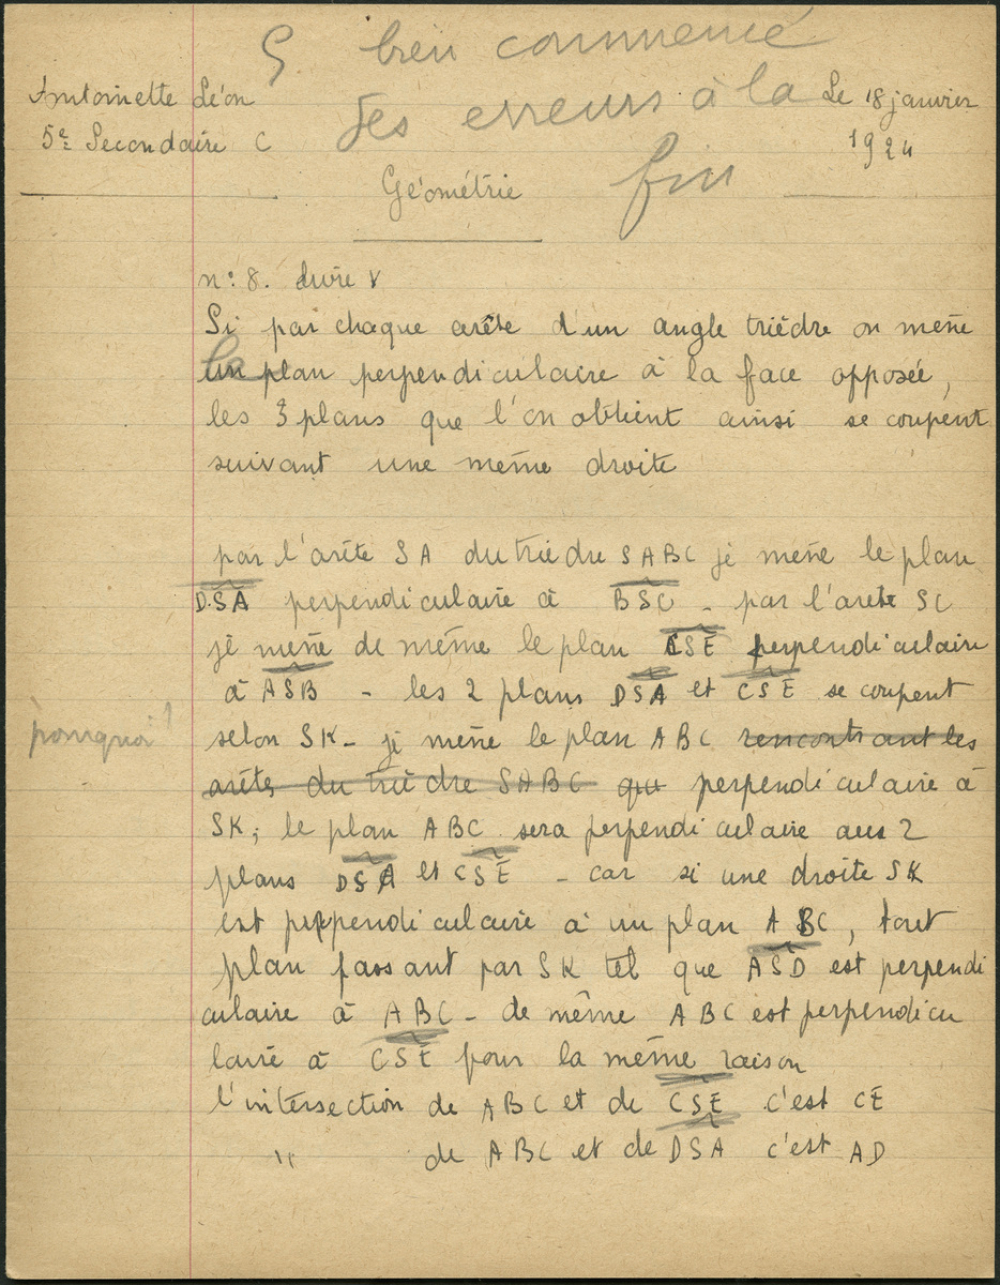 bien commencé
des erreurs à la
fin
Antoinette Léon
Le 18 janvier
5e Secondaire C
1924
Géométrie
n: 8. Livre V
Si par chaque arête d'un angle trièdre on mène
un plan perpendiculaire à la face opposée,
les 3 plans que l'on obtient ainsi se coupent
suivant une même droite
par l'arête SA du trièdre SABC je mène le plan
DSA perpendiculaire à BSC - par l'arete SC
je mène de même le plan CSE perpendiculaire
à ASB - les 2 plans DSA et CSE se coupent
pourquoi?
selon SK - je mène le plan ABC rencontrant les
arêtes du trièdre SABC qui perpendiculaire à
SK; le plan ABC sera perpendiculaire aux 2
plans DSA et CSE - car si une droite SK
est perpendiculaire à un plan ABC, tout
plan passant par SK tel que ASD est perpendi
culaire à ABC - de même ABC est perpendicu
laire à CSE pour la même raison
l'intersection de ABC et de CSE c'est CE
" de ABC et de DSA c'est AD